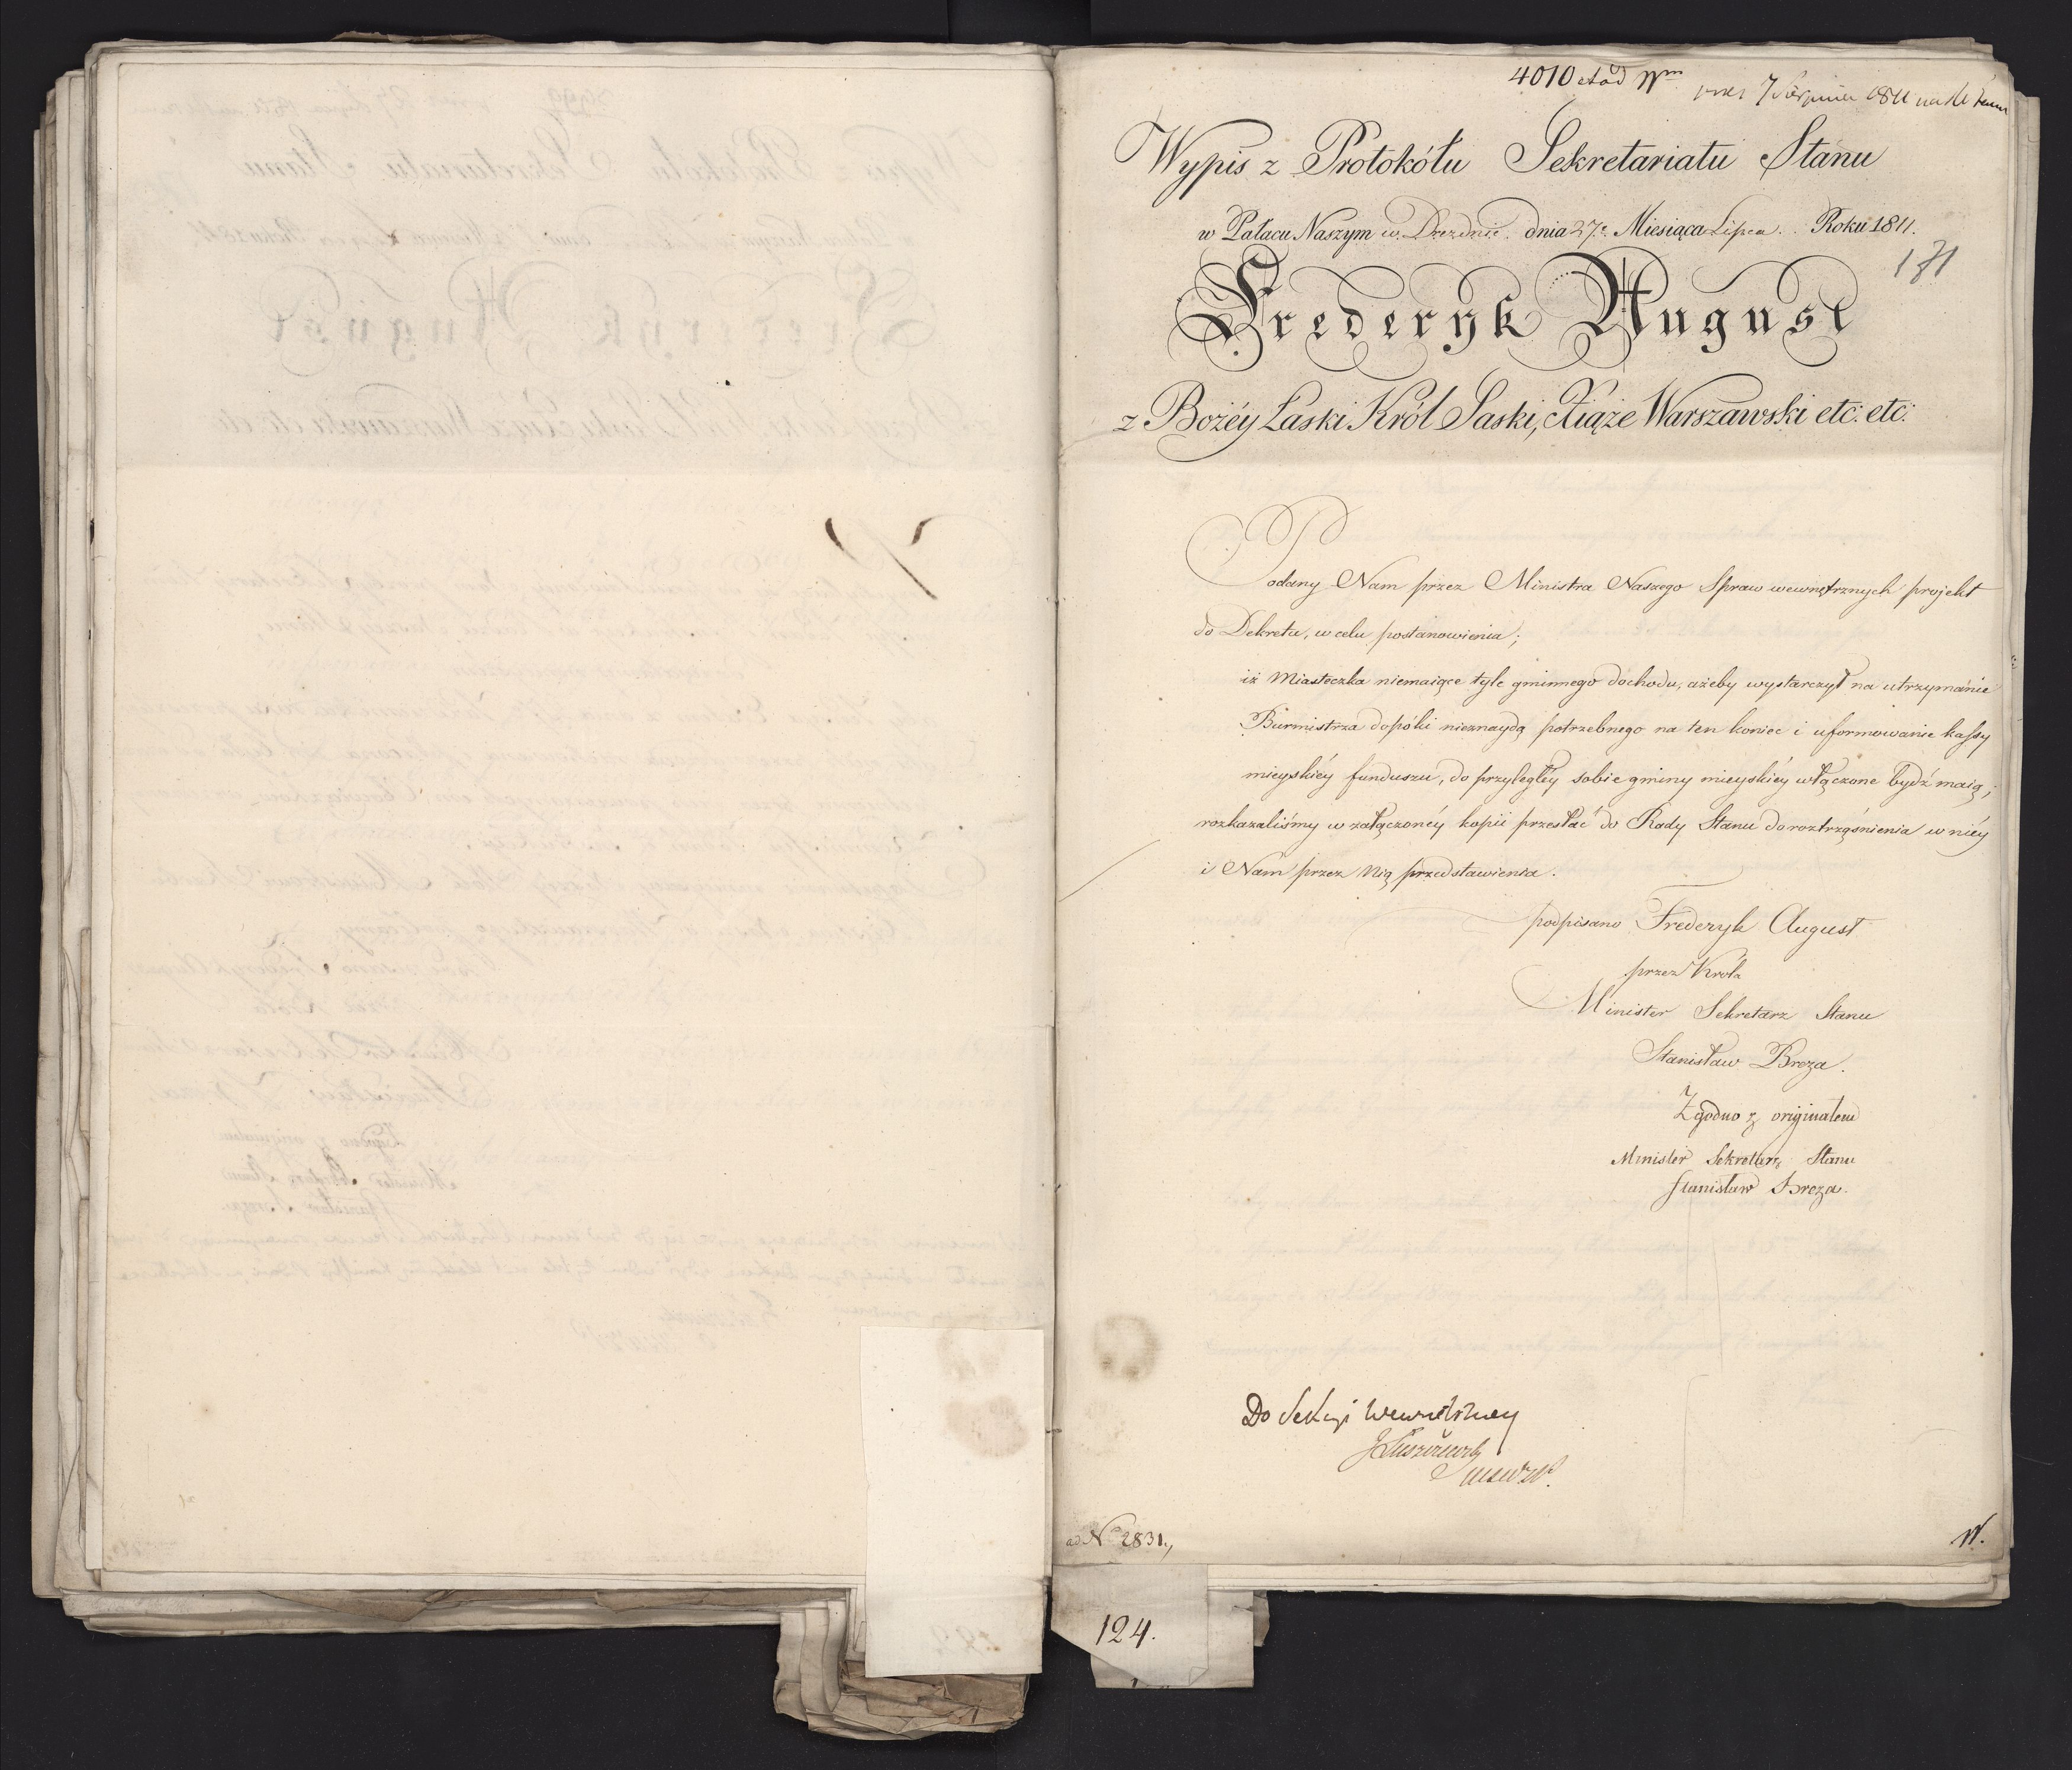 4010 
7 Sierpnia 1811
Wypis z Protokółu Sekretariatu Stanu
w Pałacu Naszym w Dreznie dnia 27.º Miesiąca Lipca. Roku 1811.
171
Frederyk August
z Bożéy Łaski Król Saski, Xiąże Warszawski etc: etc:
Podany Nam przez Ministra Naszego Spraw wewnętrznych projekt
do Dekretu, w celu postanowienia;
iż Miasteczka niemaiące tyle gminnego dochodu, ażeby wystarczył na utrzymanie
Burmistrza dopóki nieznaydą potrzebnego na ten koniec i uformowanie kassy
mieyskiéy funduszu, do przyległéy sobie gminy mieyskiéy włączone bydź maią;
rozkazaliśmy w załączonéy kopii przesłać do Rady Stanu do roztrząśnienia w niéy
i Nam przez Nią przedstawienia.
podpisano Frederyk August
przez Króla
Minister Sekretarz Stanu
Stanisław Breza.
Zgodno z originałem
Minister Sekretarz Stanu
Stanisław Breza.
Do Sekcyi Wewnętrzney
ad Nº 2831.,
W.
124.